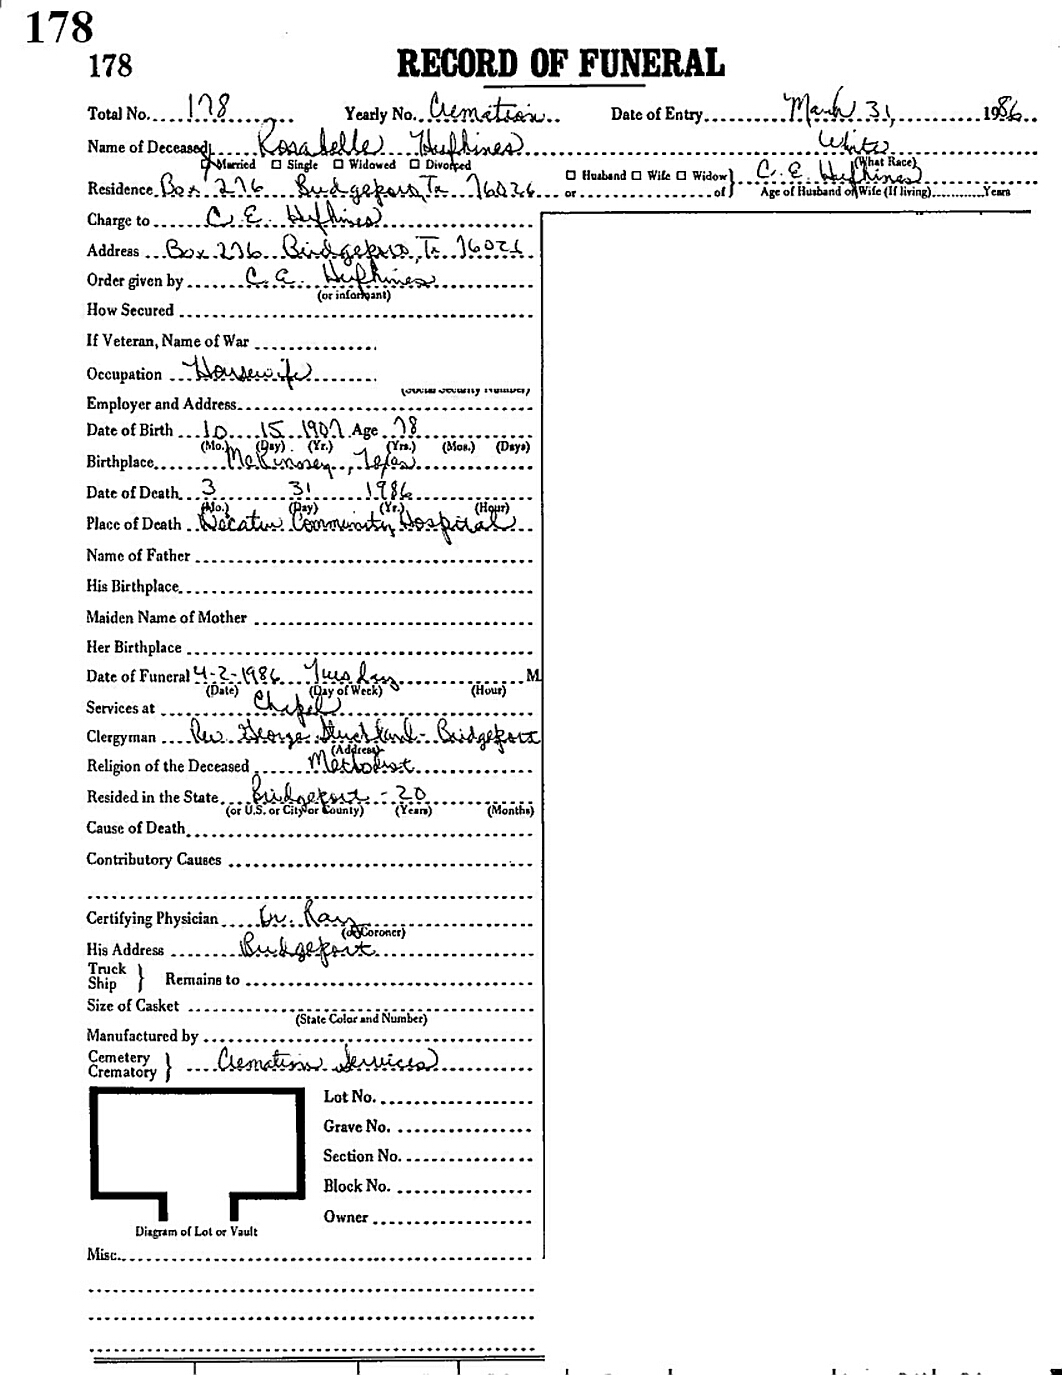 178
178 RECORD OF FUNERAL
Total No. 178 Yearly No. Cremation Date of Entry March 31, 1986
Name of Deceased Rosabelle Hufhines White
Married Single Widowed Divorced (What Race)
Residence Box 276 Bridgeport, Tx 76026 Husband Wife Widow or of } C. E. Hufhines Age of Husband or Wife (If living) Years
Charge to C. E. Hufhines
Address Box 276 Bridgeport, Tx 76026
Order given by C. E. Hufhines
(or informant)
How Secured
If Veteran, Name of War
Occupation Housewife
(Social Security Number)
Employer and Address
Date of Birth 10 15 1907 Age 78
(Mo.) (Day) (Yr.) (Yrs.) (Mos.) (Days)
Birthplace McKinney, Texas
Date of Death 3 31 1986
(Mo.) (Day) (Yr.) (Hour)
Place of Death Decatur Community Hospital
Name of Father
His Birthplace
Maiden Name of Mother
Her Birthplace
Date of Funeral 4-2-1986 Tuesday M
(Date) (Day of Week) (Hour)
Services at Chapel
Clergyman Rev. George Strickland - Bridgeport
(Address)
Religion of the Deceased Methodist
Resided in the State Bridgeport - 20
(or U.S. or City or County) (Years) (Months)
Cause of Death
Contributory Causes
Certifying Physician Dr. Ray
(or Coroner)
His Address Bridgeport
Truck Ship } Remains to
Size of Casket
(State Color and Number)
Manufactured by
Cemetery Crematory } Cremation Services
Lot No.
Grave No.
Section No.
Block No.
Owner
Diagram of Lot or Vault
Misc.